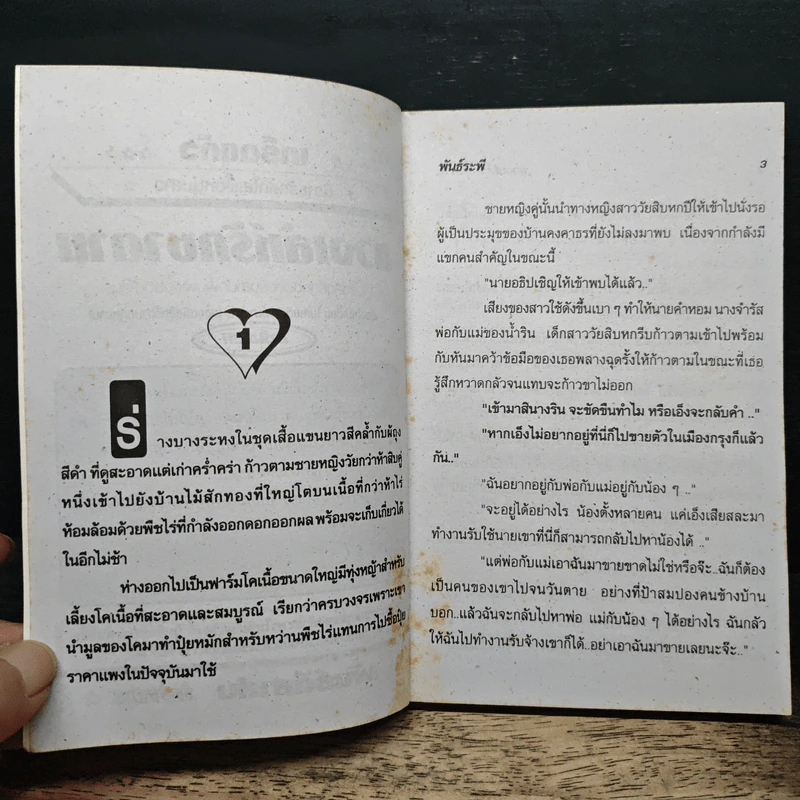 1
ร่างบางระหงในชุดเสื้อแขนยาวสีคล้ำกับผ้าถุง
สีดำ ที่ดูสะอาดแต่เก่าคร่ำคร่า ก้าวตามชายหญิงวัยกว่าห้าสิบคู่
หนึ่งเข้าไปยังบ้านไม้สักทองที่ใหญ่โตบนเนื้อที่กว่าห้าไร่
ห้อมล้อมด้วยพืชไร่ที่กำลังออกดอกออกผลพร้อมจะเก็บเกี่ยวได้
ในอีกไม่ช้า
ห่างออกไปเป็นฟาร์มโคเนื้อขนาดใหญ่มีทุ่งหญ้าสำหรับ
เลี้ยงโคเนื้อที่สะอาดและสมบูรณ์ เรียกว่าครบวงจรเพราะเขา
นำมูลของโคมาทำปุ๋ยหมักสำหรับหว่านพืชไร่แทนการไปซื้อปุ๋ย
ราคาแพงในปัจจุบันมาใช้
พันธ์ระพี 3
ชายหญิงคู่นั้นนำทางหญิงสาววัยสิบหกปีให้เข้าไปนั่งรอ
ผู้เป็นประมุขของบ้านคงคาธรที่ยังไม่ลงมาพบ เนื่องจากกำลังมี
แขกคนสำคัญในขณะนี้
"นายอธิปเชิญให้เข้าพบได้แล้ว.."
เสียงของสาวใช้ดังขึ้นเบา ๆ ทำให้นายคำหอม นางจำรัส
พ่อกับแม่ของน้ำริน เด็กสาววัยสิบหกรีบก้าวตามเข้าไปพร้อม
กับหันมาคว้าข้อมือของเธอพลางฉุดรั้งให้ก้าวตามในขณะที่เธอ
รู้สึกหวาดกลัวจนแทบจะก้าวขาไม่ออก
"เข้ามาสินางริน จะขัดขืนทำไม หรือเอ็งจะกลับคำ .."
"หากเอ็งไม่อยากอยู่ที่นี่ก็ไปขายตัวในเมืองกรุงก็แล้ว
กัน.."
"ฉันอยากอยู่กับพ่อกับแม่อยู่กับน้อง ๆ .."
"จะอยู่ได้อย่างไร น้องตั้งหลายคน แค่เอ็งเสียสละมา
ทำงานรับใช้นายเขาที่นี่ก็สามารถกลับไปหาน้องได้ .."
"แต่พ่อกับแม่เอาฉันมาขายขาดไม่ใช่หรือจ๊ะ..ฉันก็ต้อง
เป็นคนของเขาไปจนวันตาย อย่างที่ป้าสมปองคนข้างบ้าน
บอก..แล้วฉันจะกลับไปหาพ่อ แม่กับน้อง ๆ ได้อย่างไร ฉันกลัว
ให้ฉันไปทำงานรับจ้างเขาก็ได้..อย่าเอาฉันมาขายเลยนะจ๊ะ.."